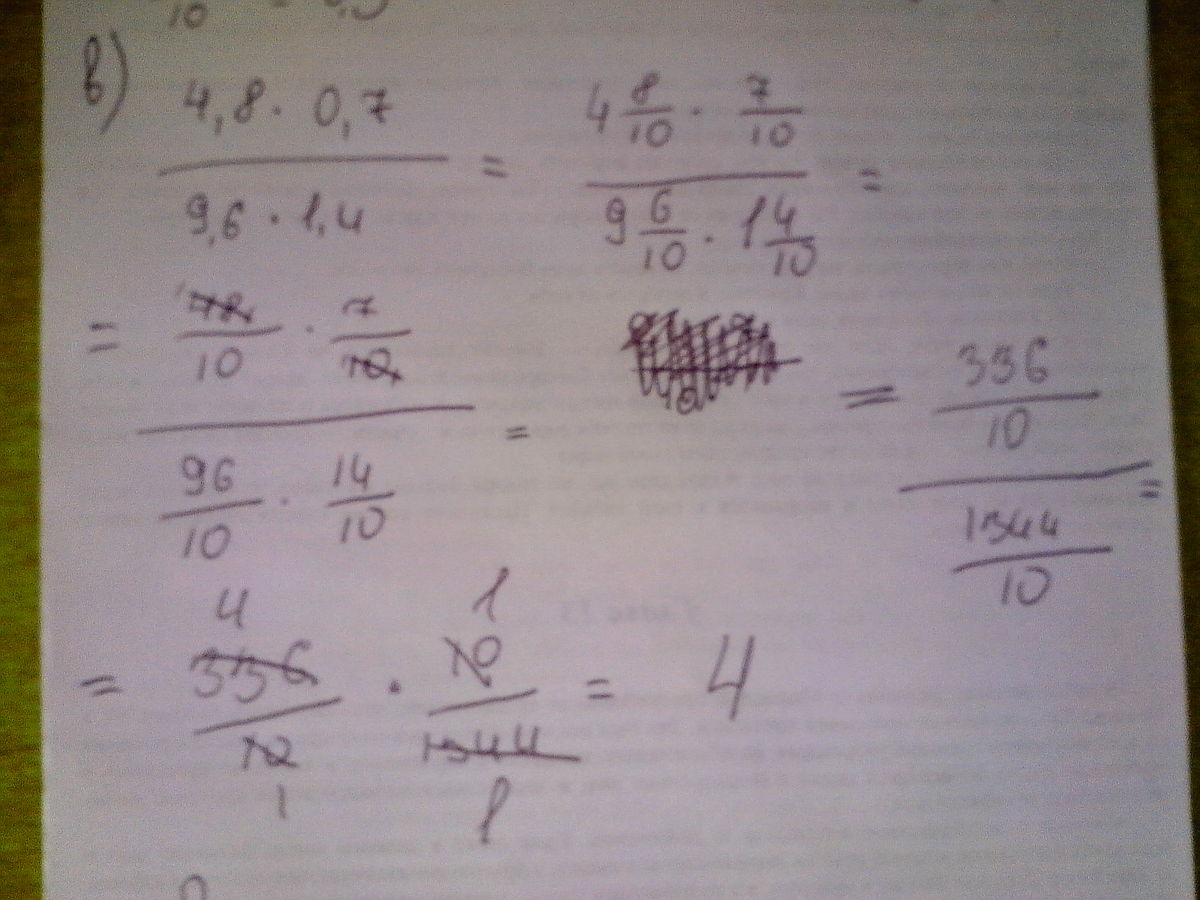 в) 4,8 · 0,7 / 9,6 · 1,4 = 4 8/10 · 7/10 / 9 6/10 · 1 4/10 =
= 48/10 · 7/10 / 96/10 · 14/10 = = 336/10 / 1344/10 =
4 1
= 336/10 · 10/1344 = 4
1 1